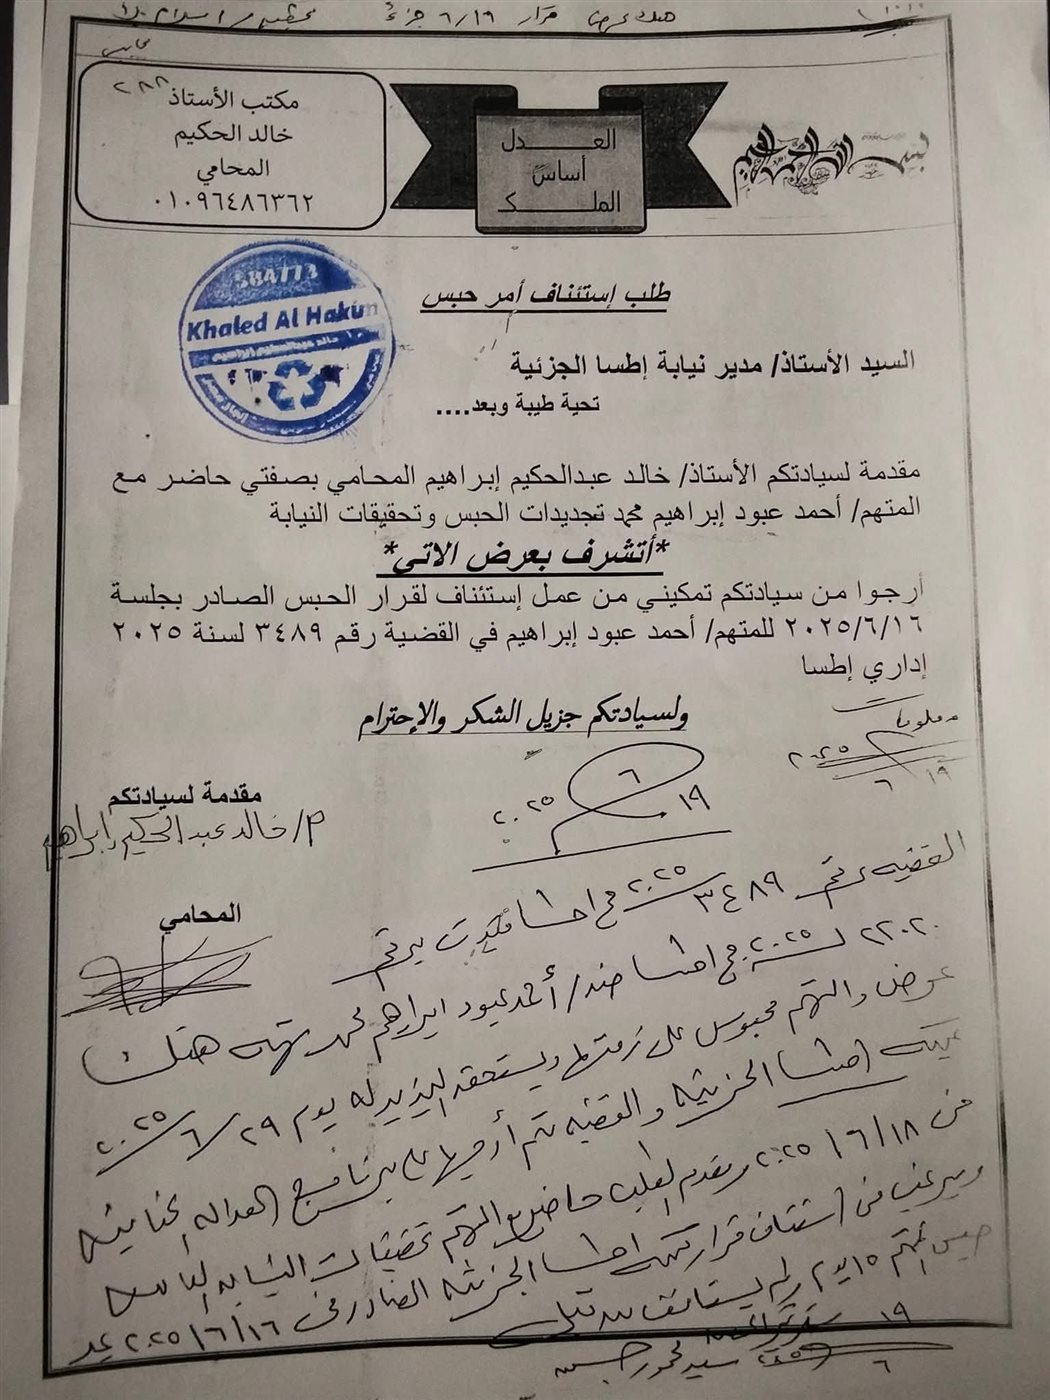 هتك عرض قرار ٦/١٩
مكتب الأستاذ
خالد الحكيم
المحامي
٠١٠٩٦٤٨٦٣٦٢
العدل
أساس
الملك
بسم الله الرحمن الرحيم
Khaled Al Hakim
خالد عبدالحكيم إبراهيم
طلب إستئناف أمر حبس
السيد الأستاذ/ مدير نيابة إطسا الجزئية
تحية طيبة وبعد....
مقدمة لسيادتكم الأستاذ/ خالد عبدالحكيم إبراهيم المحامي بصفتي حاضر مع
المتهم/ أحمد عبود إبراهيم محمد تجديدات الحبس وتحقيقات النيابة
*أتشرف بعرض الاتي*
أرجوا من سيادتكم تمكيني من عمل إستئناف لقرار الحبس الصادر بجلسة
٢٠٢٥/٦/١٦ للمتهم/ أحمد عبود إبراهيم في القضية رقم ٣٤٨٩ لسنة ٢٠٢٥
إداري إطسا
ولسيادتكم جزيل الشكر والإحترام
معلومات
١٩/٦/٢٠٢٥
١٩/٦/٢٠٢٥
مقدمة لسيادتكم
م/ خالد عبد الحكيم إبراهيم
المحامي
القضيه رقم ٣٤٨٩ لسنة ٢٠٢٥ ح اطسا قيدت برقم
٢٢٠٢٠ لسنة ٢٠٢٥ ج اطسا ضد/ أحمد عبود ابراهيم محمد تهمه هتك
عرض والمتهم محبوس على ذمتها ويستحق التجديد له يوم ٢٩/٦/٢٠٢٥
اطسا الجزئيه والقضيه تم على برنامج العداله الجنائيه
من ٢٠٢٥/٦/١٨ ومقدم الطلب حاضر مع المتهم تحقيقات النيابه العامه
ويرغب في استئناف قرار محكمه اطسا الجزئيه الصادر في ٢٠٢٥/٦/١٦
حبس المتهم ١٥ يوم ولم يستأنف من قبل
١٩/٦/٢٠٢٥